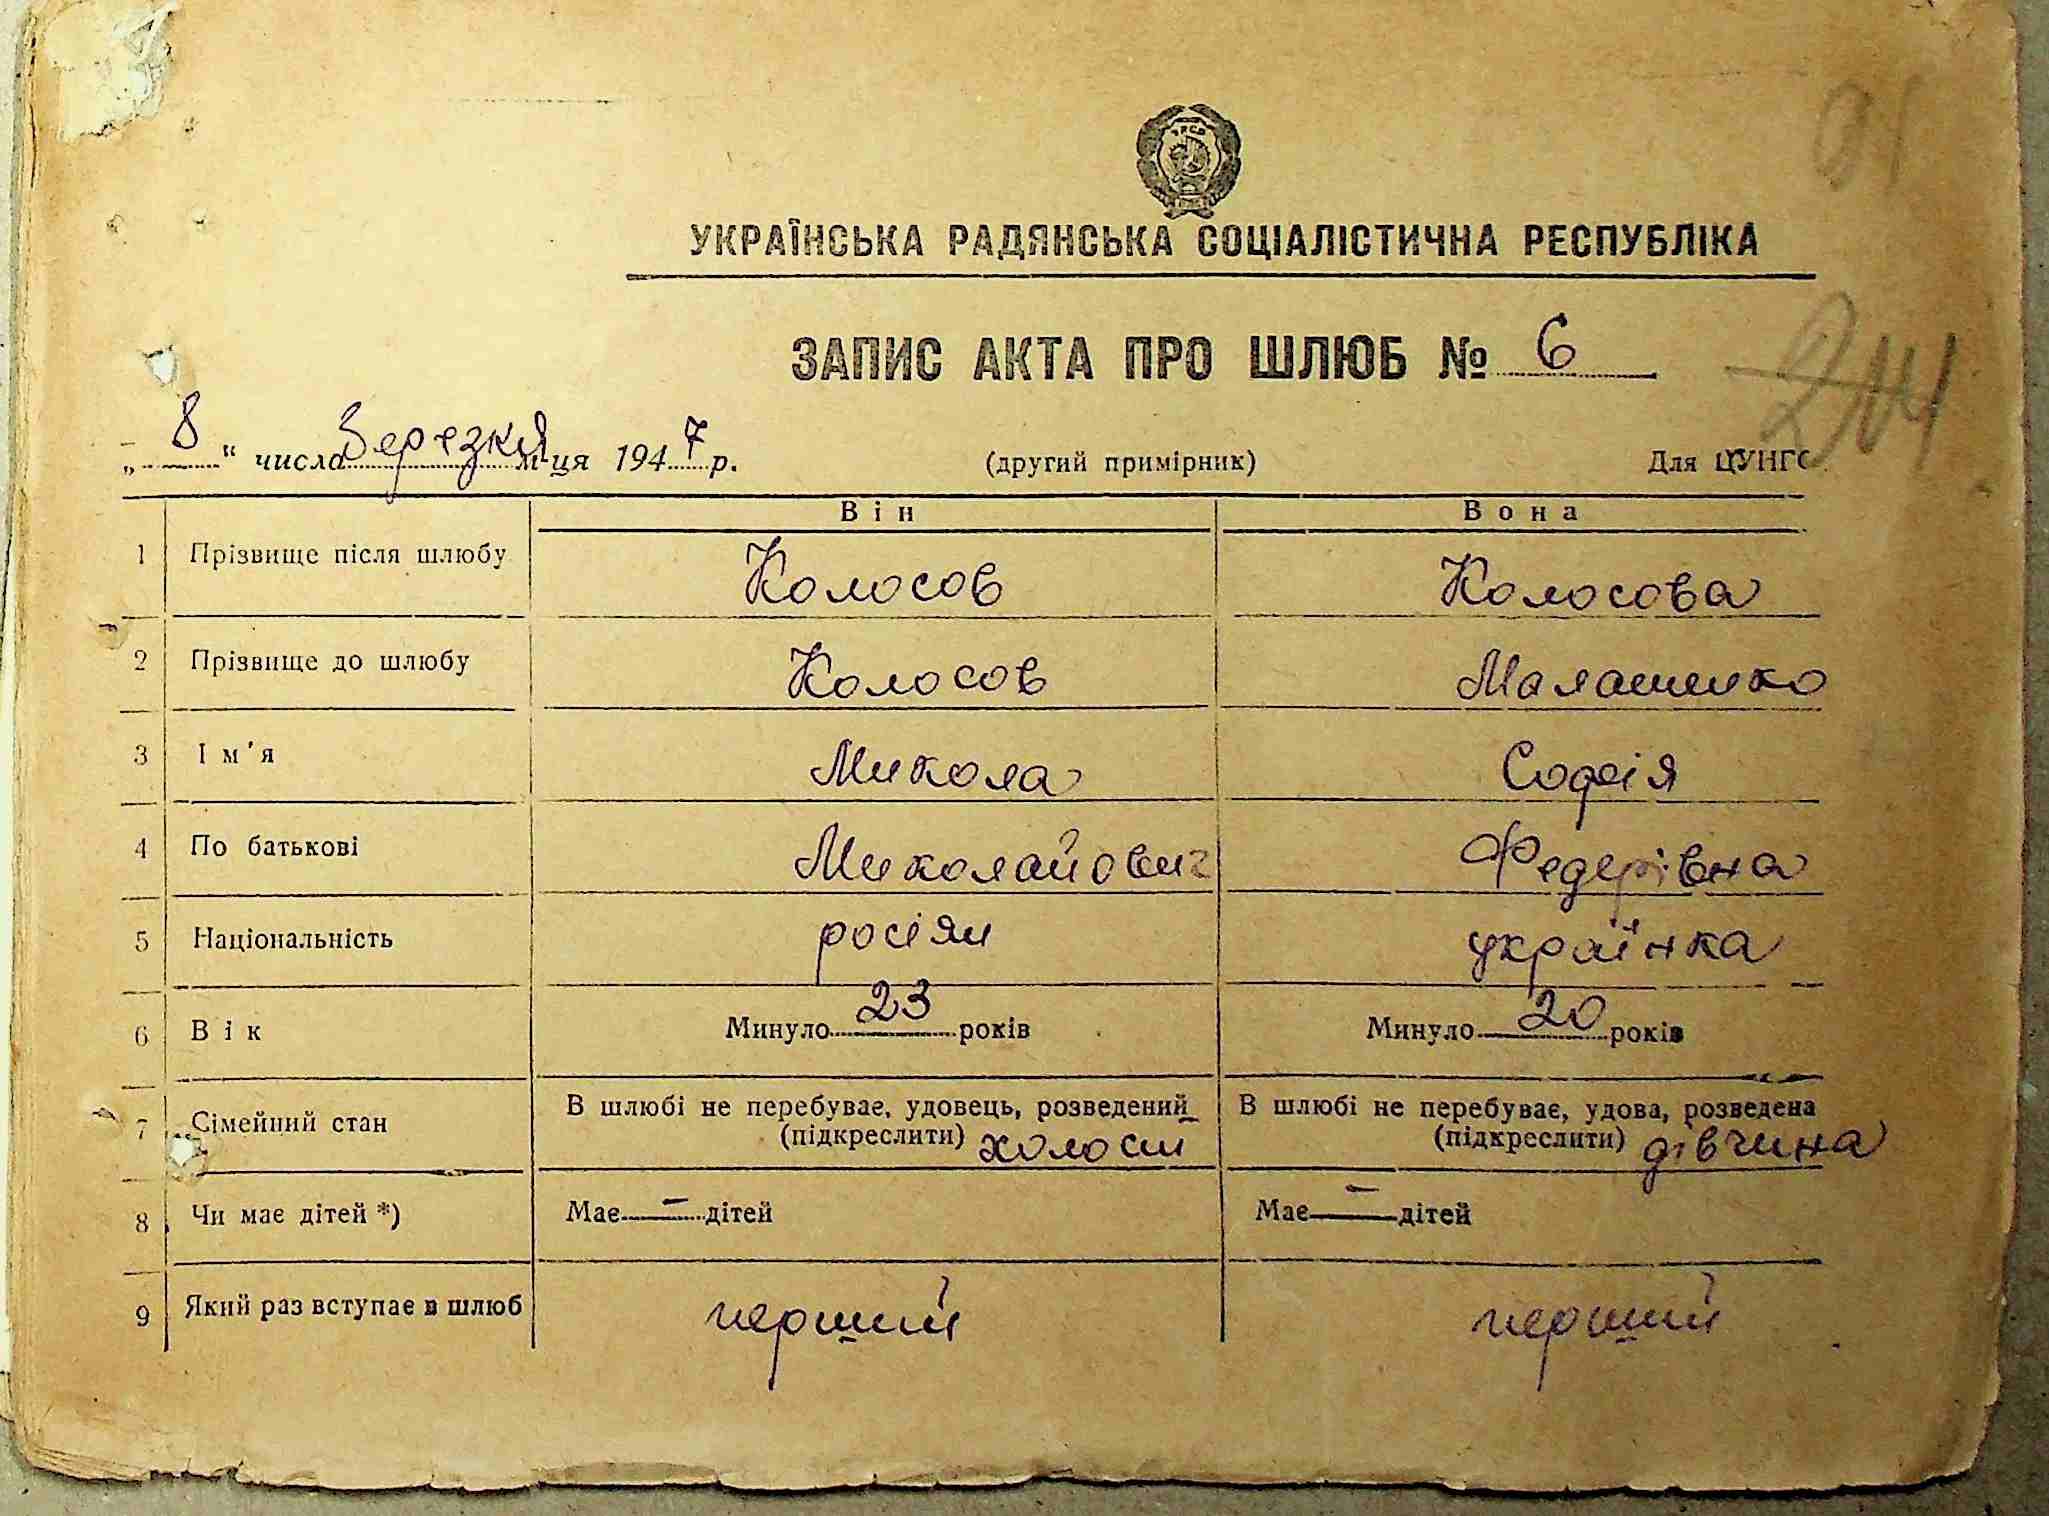 УКРАЇНСЬКА РАДЯНСЬКА СОЦІАЛІСТИЧНА РЕСПУБЛІКА
ЗАПИС АКТА ПРО ШЛЮБ № 6
204
„ 8 “ числа березня м-ця 1947 р. (другий примірник) Для ЦУНГО
Він Вона
1 Прізвище після шлюбу Колосов Колосова
2 Прізвище до шлюбу Колосов Малашенко
3 Ім'я Микола Софія
4 По батькові Миколайович Федерівна
5 Національність росіян українка
6 Вік Минуло 23 років Минуло 20 років
7 Сімейний стан В шлюбі не перебуває, удовець, розведений В шлюбі не перебуває, удова, розведена
(підкреслити) холост (підкреслити) дівчина
8 Чи має дітей *) Має — дітей Має — дітей
9 Який раз вступає в шлюб перший перший